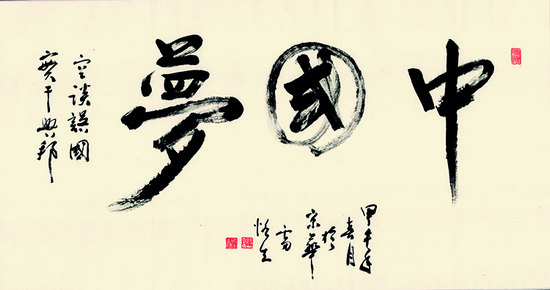 中國夢
空談誤國
實干興邦
甲午年
春月
於
宗華